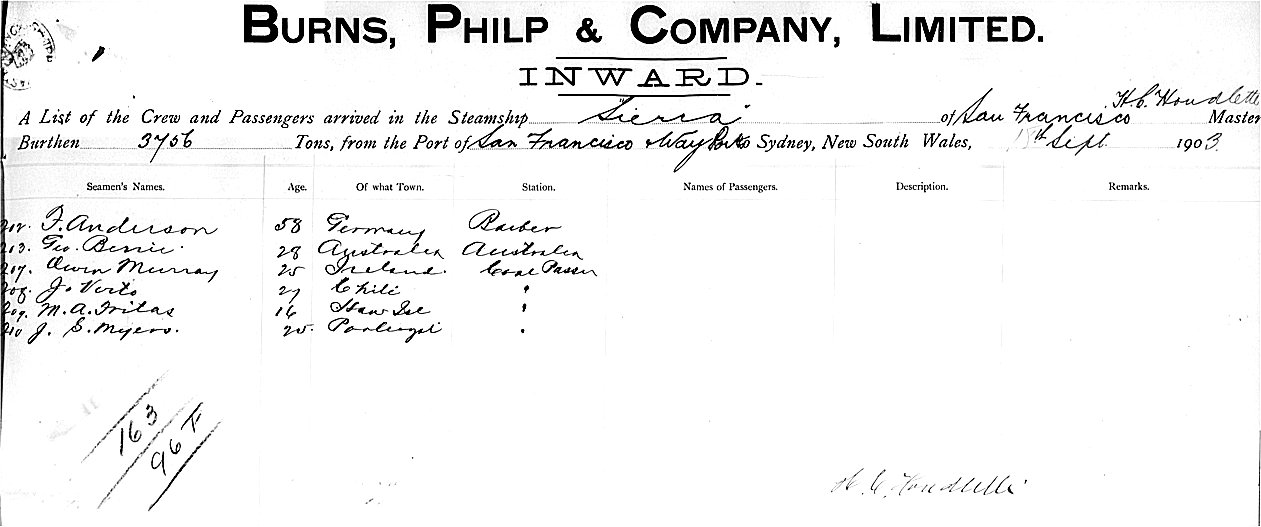 BURNS, PHILP & COMPANY, LIMITED.
INWARD.
H.C. Houdlette
A List of the Crew and Passengers arrived in the Steamship "Sierra" of San Francisco Master
Burthen 3756 Tons, from the Port of San Francisco & Way Ports to Sydney, New South Wales, 18th Sept. 1903.
Seamen's Names. Age. Of what Town. Station. Names of Passengers. Description. Remarks.
F. Anderson 58 Germany Barber
213. Geo. 28 Australia Australia
207. Owen Murray 25 Ireland. Coal Passer
208. J. 27 Chili "
209. M. A. Fritas 16 Haw Isl "
210 J. S. Myers. 25. "
163
96 F
H. C. Houdlette